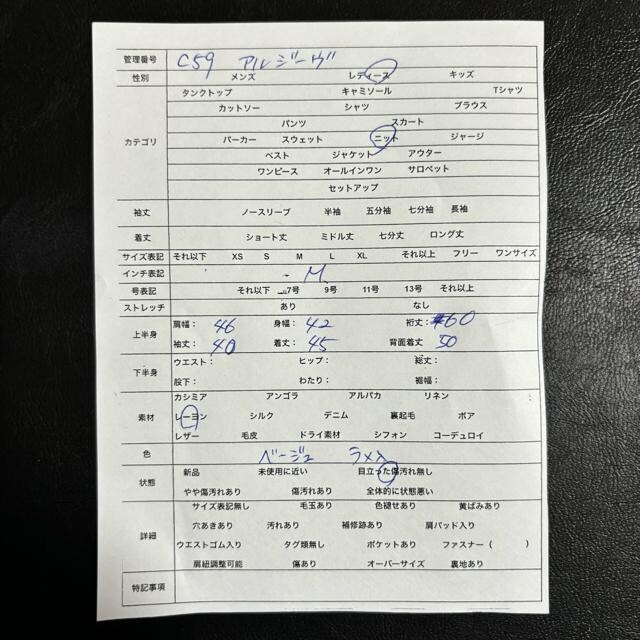 管理番号 C59 アルジーヴ
性別 メンズ レディース キッズ
タンクトップ キャミソール Tシャツ
カットソー シャツ ブラウス
パンツ スカート
カテゴリ パーカー スウェット ニット ジャージ
ベスト ジャケット アウター
ワンピース オールインワン サロペット
セットアップ
袖丈 ノースリーブ 半袖 五分袖 七分袖 長袖
着丈 ショート丈 ミドル丈 七分丈 ロング丈
サイズ表記 それ以下 XS S M L XL それ以上 フリー ワンサイズ
インチ表記 M
号表記 それ以下 7号 9号 11号 13号 それ以上
ストレッチ あり なし
上半身 肩幅： 46 身幅： 42 裄丈： 60
袖丈： 40 着丈： 45 背面着丈 50
下半身 ウエスト： ヒップ： 総丈：
股下： わたり： 裾幅：
カシミア アンゴラ アルパカ リネン
素材 レーヨン シルク デニム 裏起毛 ボア
レザー 毛皮 ドライ素材 シフォン コーデュロイ
色 ベージュ ラメ入
状態 新品 未使用に近い 目立った傷汚れ無し
やや傷汚れあり 傷汚れあり 全体的に状態悪い
サイズ表記無し 毛玉あり 色褪せあり 黄ばみあり
詳細 穴あきあり 汚れあり 補修跡あり 肩パッド入り
ウエストゴム入り タグ類無し ポケットあり ファスナー（ ）
肩紐調整可能 傷あり オーバーサイズ 裏地あり
特記事項